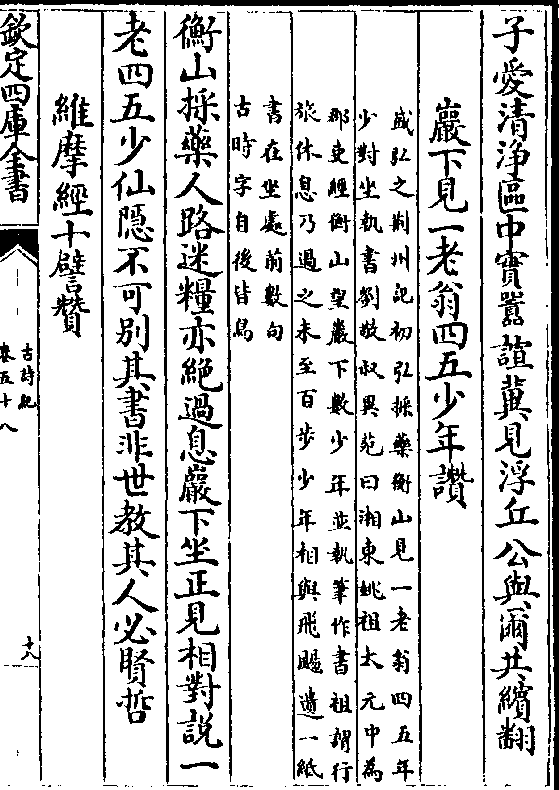 子愛清浄區中實囂諠冀見浮丘公與爾共繽翻
巖下見一老翁四五少年讚
盛弘之荆州記初弘採藥衡山見一老翁四五年
少對坐執書劉敬叔異苑曰湘東姚祖太元中為
郡吏經衡山望巖下數少年並執筆作書祖謂行
旅休息乃過之未至百步少年相與飛颺遺一紙
書在坐處前數句
古時字自後皆鳥
衡山採藥人路迷糧亦絶過息巖下坐正見相對說一
老四五少仙隠不可别其書非世教其人必賢哲
維摩經十譬讚
欽定四庫全書
古詩紀
卷五十八
十八